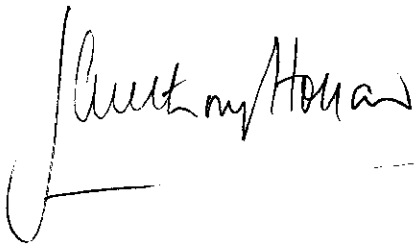 J Anthony Holland